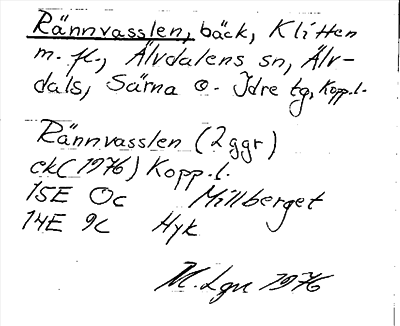 Rännvasslen, bäck, Klitten
m. fl., Älvdalens sn, Älv-
dals, Särna o. Idre tg, Kopp.l.
Rännvasslen (2ggr)
ek (1976) Kopp.l.
15E 0c Millberget
14E 9c Hyk
M.Lgn 1976